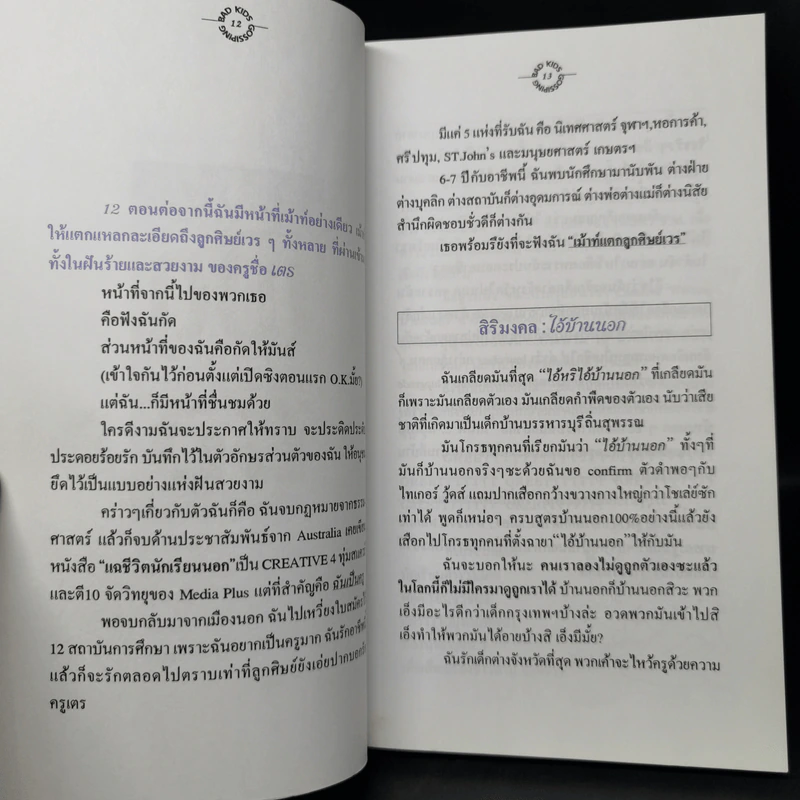 BAD KIDS
12
GOSSIPING
12 ตอนต่อจากนี้ฉันมีหน้าที่เม้าท์อย่างเดียว
ให้แตกแหลกละเอียดถึงลูกศิษย์เวร ๆ ทั้งหลาย ที่ผ่านเข้ามา
ทั้งในฝันร้ายและสวยงาม ของครูชื่อ เตร
หน้าที่จากนี้ไปของพวกเธอ
คือฟังฉันกัด
ส่วนหน้าที่ของฉันคือกัดให้มันส์
(เข้าใจกันไว้ก่อนตั้งแต่เปิดซิงตอนแรก O.K.มั้ย?)
แต่ฉัน...ก็มีหน้าที่ชื่นชมด้วย
ใครดีงามฉันจะประกาศให้ทราบ จะประดิดประดับ
ประดอยร้อยรัก บันทึกไว้ในตัวอักษรส่วนตัวของฉัน
ยึดไว้เป็นแบบอย่างแห่งฝันสวยงาม
คร่าวๆเกี่ยวกับตัวฉันก็คือ ฉันจบกฎหมายจากธรรม
ศาสตร์ แล้วก็จบด้านประชาสัมพันธ์จาก Australia เคยเขียน
หนังสือ "แฉชีวิตนักเรียนนอก"เป็น CREATIVE 4 ทุ่มสแควร์
และตี10 จัดวิทยุของ Media Plus แต่ที่สำคัญคือ ฉันเป็นครู
พอจบกลับมาจากเมืองนอก ฉันไปเหวี่ยงใบสมัครไว้
12 สถาบันการศึกษา เพราะฉันอยากเป็นครูมาก ฉันรักอาชีพนี้
แล้วก็จะรักตลอดไปตราบเท่าที่ลูกศิษย์ยังเอ่ยปากบอกว่า
ครูเตร
BAD KIDS
13
GOSSIPING
มีแค่ 5 แห่งที่รับฉัน คือ นิเทศศาสตร์ จุฬาฯ,หอการค้า,
ศรีปทุม, ST.John's และมนุษยศาสตร์ เกษตรฯ
6-7 ปีกับอาชีพนี้ ฉันพบนักศึกษามานับพัน ต่างฝ่าย
ต่างบุคลิก ต่างสถาบันก็ต่างอุดมการณ์ ต่างพ่อต่างแม่ก็ต่างนิสัย
สำนึกผิดชอบชั่วดีก็ต่างกัน
เธอพร้อมรึยังที่จะฟังฉัน "เม้าท์แตกลูกศิษย์เวร"
สิริมงคล : ไอ้บ้านนอก
ฉันเกลียดมันที่สุด "ไอ้หริไอ้บ้านนอก" ที่เกลียดมัน
ก็เพราะมันเกลียดตัวเอง มันเกลียดกำพืดของตัวเอง นับว่าเสีย
ชาติที่เกิดมาเป็นเด็กบ้านบรรหารบุรีถิ่นสุพรรณ
มันโกรธทุกคนที่เรียกมันว่า "ไอ้บ้านนอก" ทั้งๆที่
มันก็บ้านนอกจริงๆซะด้วยฉันขอ confirm ตัวดำพอๆกับ
ไทเกอร์ วู้ดส์ แถมปากเสือกกว้างขวางกางใหญ่กว่าโชเล่ย์ซัก
เท่าได้ พูดก็เหน่อๆ ครบสูตรบ้านนอก100%อย่างนี้แล้วยัง
เสือกไปโกรธทุกคนที่ตั้งฉายา "ไอ้บ้านนอก" ให้กับมัน
ฉันจะบอกให้นะ คนเราลองไม่ดูถูกตัวเองซะแล้ว
ในโลกนี้ก็ไม่มีใครมาดูถูกเราได้ บ้านนอกก็บ้านนอกสิวะ พวก
เอ็งมีอะไรดีกว่าเด็กกรุงเทพฯบ้างล่ะ อวดพวกมันเข้าไปสิ
เอ็งทำให้พวกมันได้อายบ้างสิ เอ็งมีมั้ย?
ฉันรักเด็กต่างจังหวัดที่สุด พวกเค้าจะไหว้ครูด้วยความ